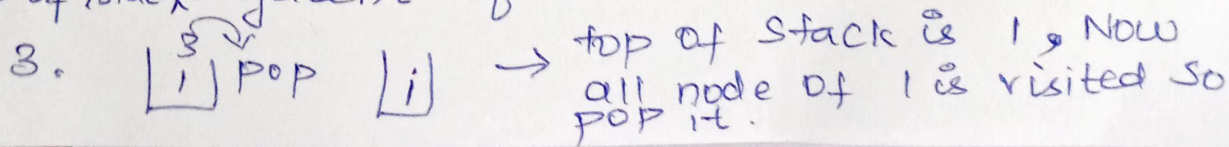 3. 3 1 pop 1 → top of stack is 1, Now
all node of 1 is visited so
pop it.